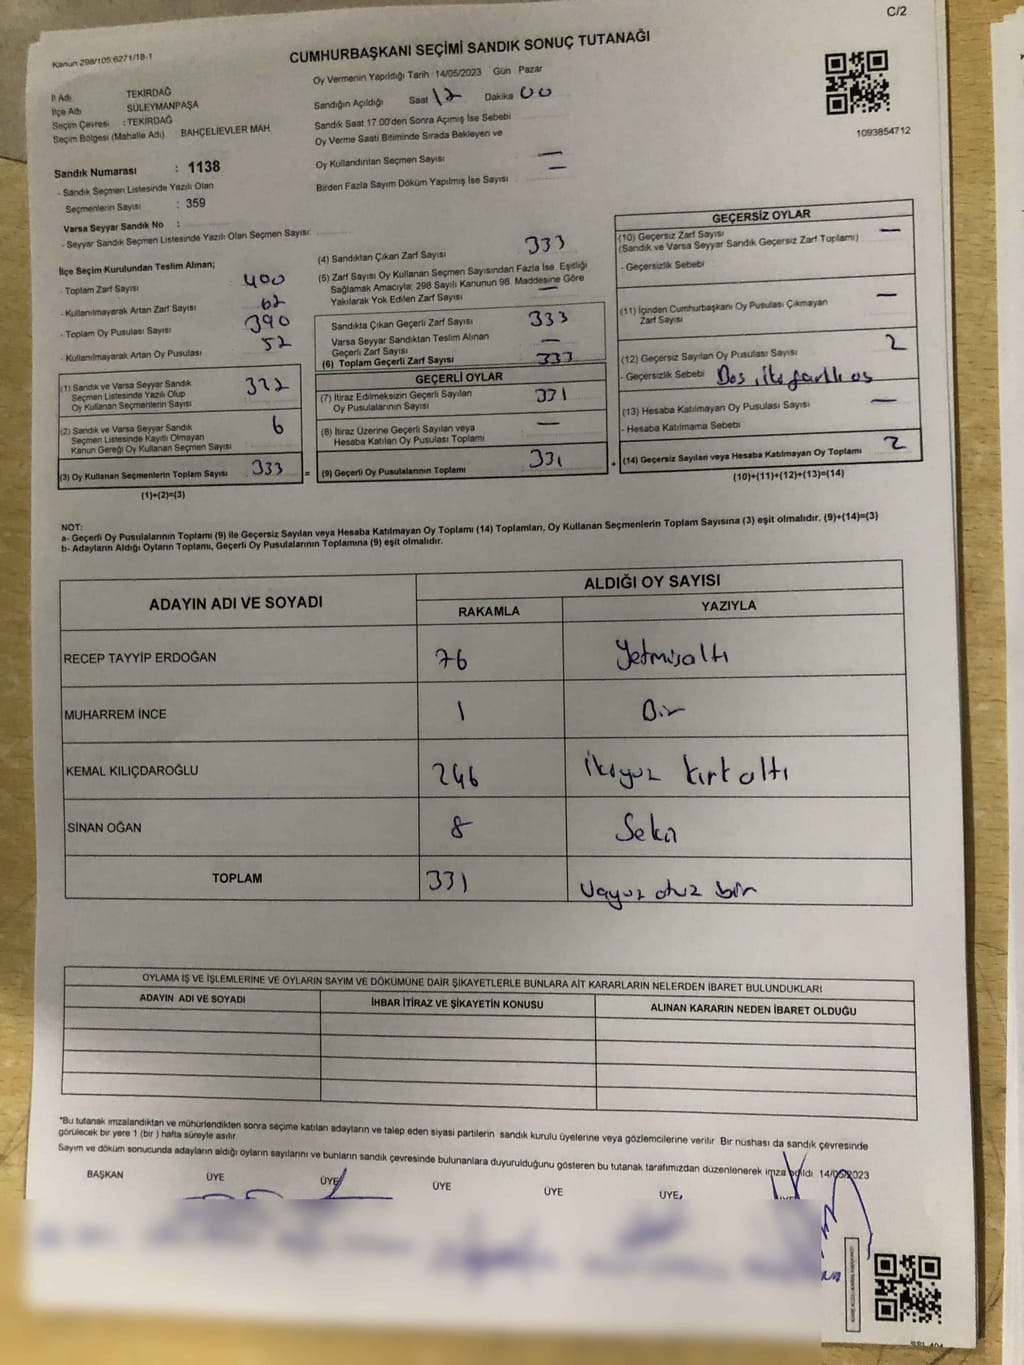 C/2
Kanun 298/105:6271/18-1
CUMHURBAŞKANI SEÇİMİ SANDIK SONUÇ TUTANAĞI
1093854712
İl Adı TEKİRDAĞ
İlçe Adı SÜLEYMANPAŞA
Seçim Çevresi : TEKİRDAĞ
Seçim Bölgesi (Mahalle Adı) BAHÇELİEVLER MAH.
Sandık Numarası : 1138
- Sandık Seçmen Listesinde Yazılı Olan
Seçmenlerin Sayısı : 359
Varsa Seyyar Sandık No :
- Seyyar Sandık Seçmen Listesinde Yazılı Olan Seçmen Sayısı:
Oy Vermenin Yapıldığı Tarih : 14/05/2023 Gün Pazar
Sandığın Açıldığı Saat 12 Dakika 00
Sandık Saat 17.00'den Sonra Açımış İse Sebebi
Oy Verme Saati Bitiminde Sırada Bekleyen ve
Oy Kullandırılan Seçmen Sayısı —
Birden Fazla Sayım Döküm Yapılmış İse Sayısı —
İlçe Seçim Kurulundan Teslim Alınan;
- Toplam Zarf Sayısı 400
- Kullanılmayarak Artan Zarf Sayısı 62
- Toplam Oy Pusulası Sayısı 390
- Kullanılmayarak Artan Oy Pusulası 52
(1) Sandık ve Varsa Seyyar Sandık
Seçmen Listesinde Yazılı Olup
Oy Kullanan Seçmenlerin Sayısı
(2) Sandık ve Varsa Seyyar Sandık
Seçmen Listesinde Kayıtlı Olmayan
Kanun Gereği Oy Kullanan Seçmen Sayısı 6
(3) Oy Kullanan Seçmenlerin Toplam Sayısı 333
(1)+(2)=(3)
(4) Sandıktan Çıkan Zarf Sayısı 333
(5) Zarf Sayısı Oy Kullanan Seçmen Sayısından Fazla İse, Eşitliği
Sağlamak Amacıyla; 298 Sayılı Kanunun 98. Maddesine Göre
Yakılarak Yok Edilen Zarf Sayısı —
Sandıkta Çıkan Geçerli Zarf Sayısı 333
Varsa Seyyar Sandıktan Teslim Alınan
Geçerli Zarf Sayısı —
(6) Toplam Geçerli Zarf Sayısı 333
GEÇERLİ OYLAR
(7) İtiraz Edilmeksizin Geçerli Sayılan
Oy Pusulalarının Sayısı 331
(8) İtiraz Üzerine Geçerli Sayılan veya
Hesaba Katılan Oy Pusulası Toplamı —
= (9) Geçerli Oy Pusulalarının Toplamı 331
GEÇERSİZ OYLAR
(10) Geçersiz Zarf Sayısı —
(Sandık ve Varsa Seyyar Sandık Geçersiz Zarf Toplamı)
- Geçersizlik Sebebi
(11) İçinden Cumhurbaşkanı Oy Pusulası Çıkmayan
Zarf Sayısı —
(12) Geçersiz Sayılan Oy Pusulası Sayısı 2
- Geçersizlik Sebebi
(13) Hesaba Katılmayan Oy Pusulası Sayısı —
- Hesaba Katılmama Sebebi
+ (14) Geçersiz Sayılan veya Hesaba Katılmayan Oy Toplamı 2
(10)+(11)+(12)+(13)=(14)
NOT:
a- Geçerli Oy Pusulalarının Toplamı (9) ile Geçersiz Sayılan veya Hesaba Katılmayan Oy Toplamı (14) Toplamları, Oy Kullanan Seçmenlerin Toplam Sayısına (3) eşit olmalıdır. (9)+(14)=(3)
b- Adayların Aldığı Oyların Toplamı, Geçerli Oy Pusulalarının Toplamına (9) eşit olmalıdır.
ADAYIN ADI VE SOYADI ALDIĞI OY SAYISI
RAKAMLA YAZIYLA
RECEP TAYYİP ERDOĞAN 76 Yetmişaltı
MUHARREM İNCE 1 Bir
KEMAL KILIÇDAROĞLU 246 İkiyüz kırkaltı
SİNAN OĞAN 8 Sekiz
TOPLAM 331 Üçyüz otuz bir
OYLAMA İŞ VE İŞLEMLERİNE VE OYLARIN SAYIM VE DÖKÜMÜNE DAİR ŞİKAYETLERLE BUNLARA AİT KARARLARIN NELERDEN İBARET BULUNDUKLARI
ADAYIN ADI VE SOYADI İHBAR İTİRAZ VE ŞİKAYETİN KONUSU ALINAN KARARIN NEDEN İBARET OLDUĞU
*Bu tutanak imzalandıktan ve mühürlendikten sonra seçime katılan adayların ve talep eden siyasi partilerin sandık kurulu üyelerine veya gözlemcilerine verilir. Bir nüshası da sandık çevresinde
görülecek bir yere 1 (bir) hafta süreyle asılır.
Sayım ve döküm sonucunda adayların aldığı oyların sayılarını ve bunların sandık çevresinde bulunanlara duyurulduğunu gösteren bu tutanak tarafımızdan düzenlenerek imza edildi. 14/05/2023
BAŞKAN ÜYE ÜYE ÜYE ÜYE ÜYE